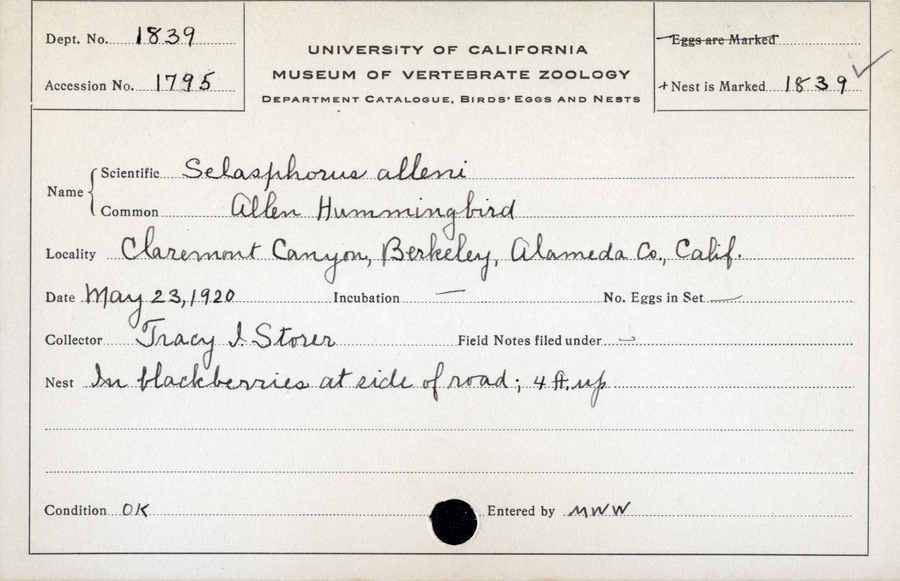 Dept. No. 1839
Accession No. 1795
UNIVERSITY OF CALIFORNIA
MUSEUM OF VERTEBRATE ZOOLOGY
DEPARTMENT CATALOGUE, BIRDS' EGGS AND NESTS
Eggs are Marked
+ Nest is Marked 1839 ✓
Name { Scientific Selasphorus alleni
Common Allen Hummingbird
Locality Claremont Canyon, Berkeley, Alameda Co., Calif.
Date May 23, 1920 Incubation — No. Eggs in Set —
Collector Tracy I. Storer Field Notes filed under —
Nest In blackberries at side of road; 4 ft. up
Condition OK Entered by MWW